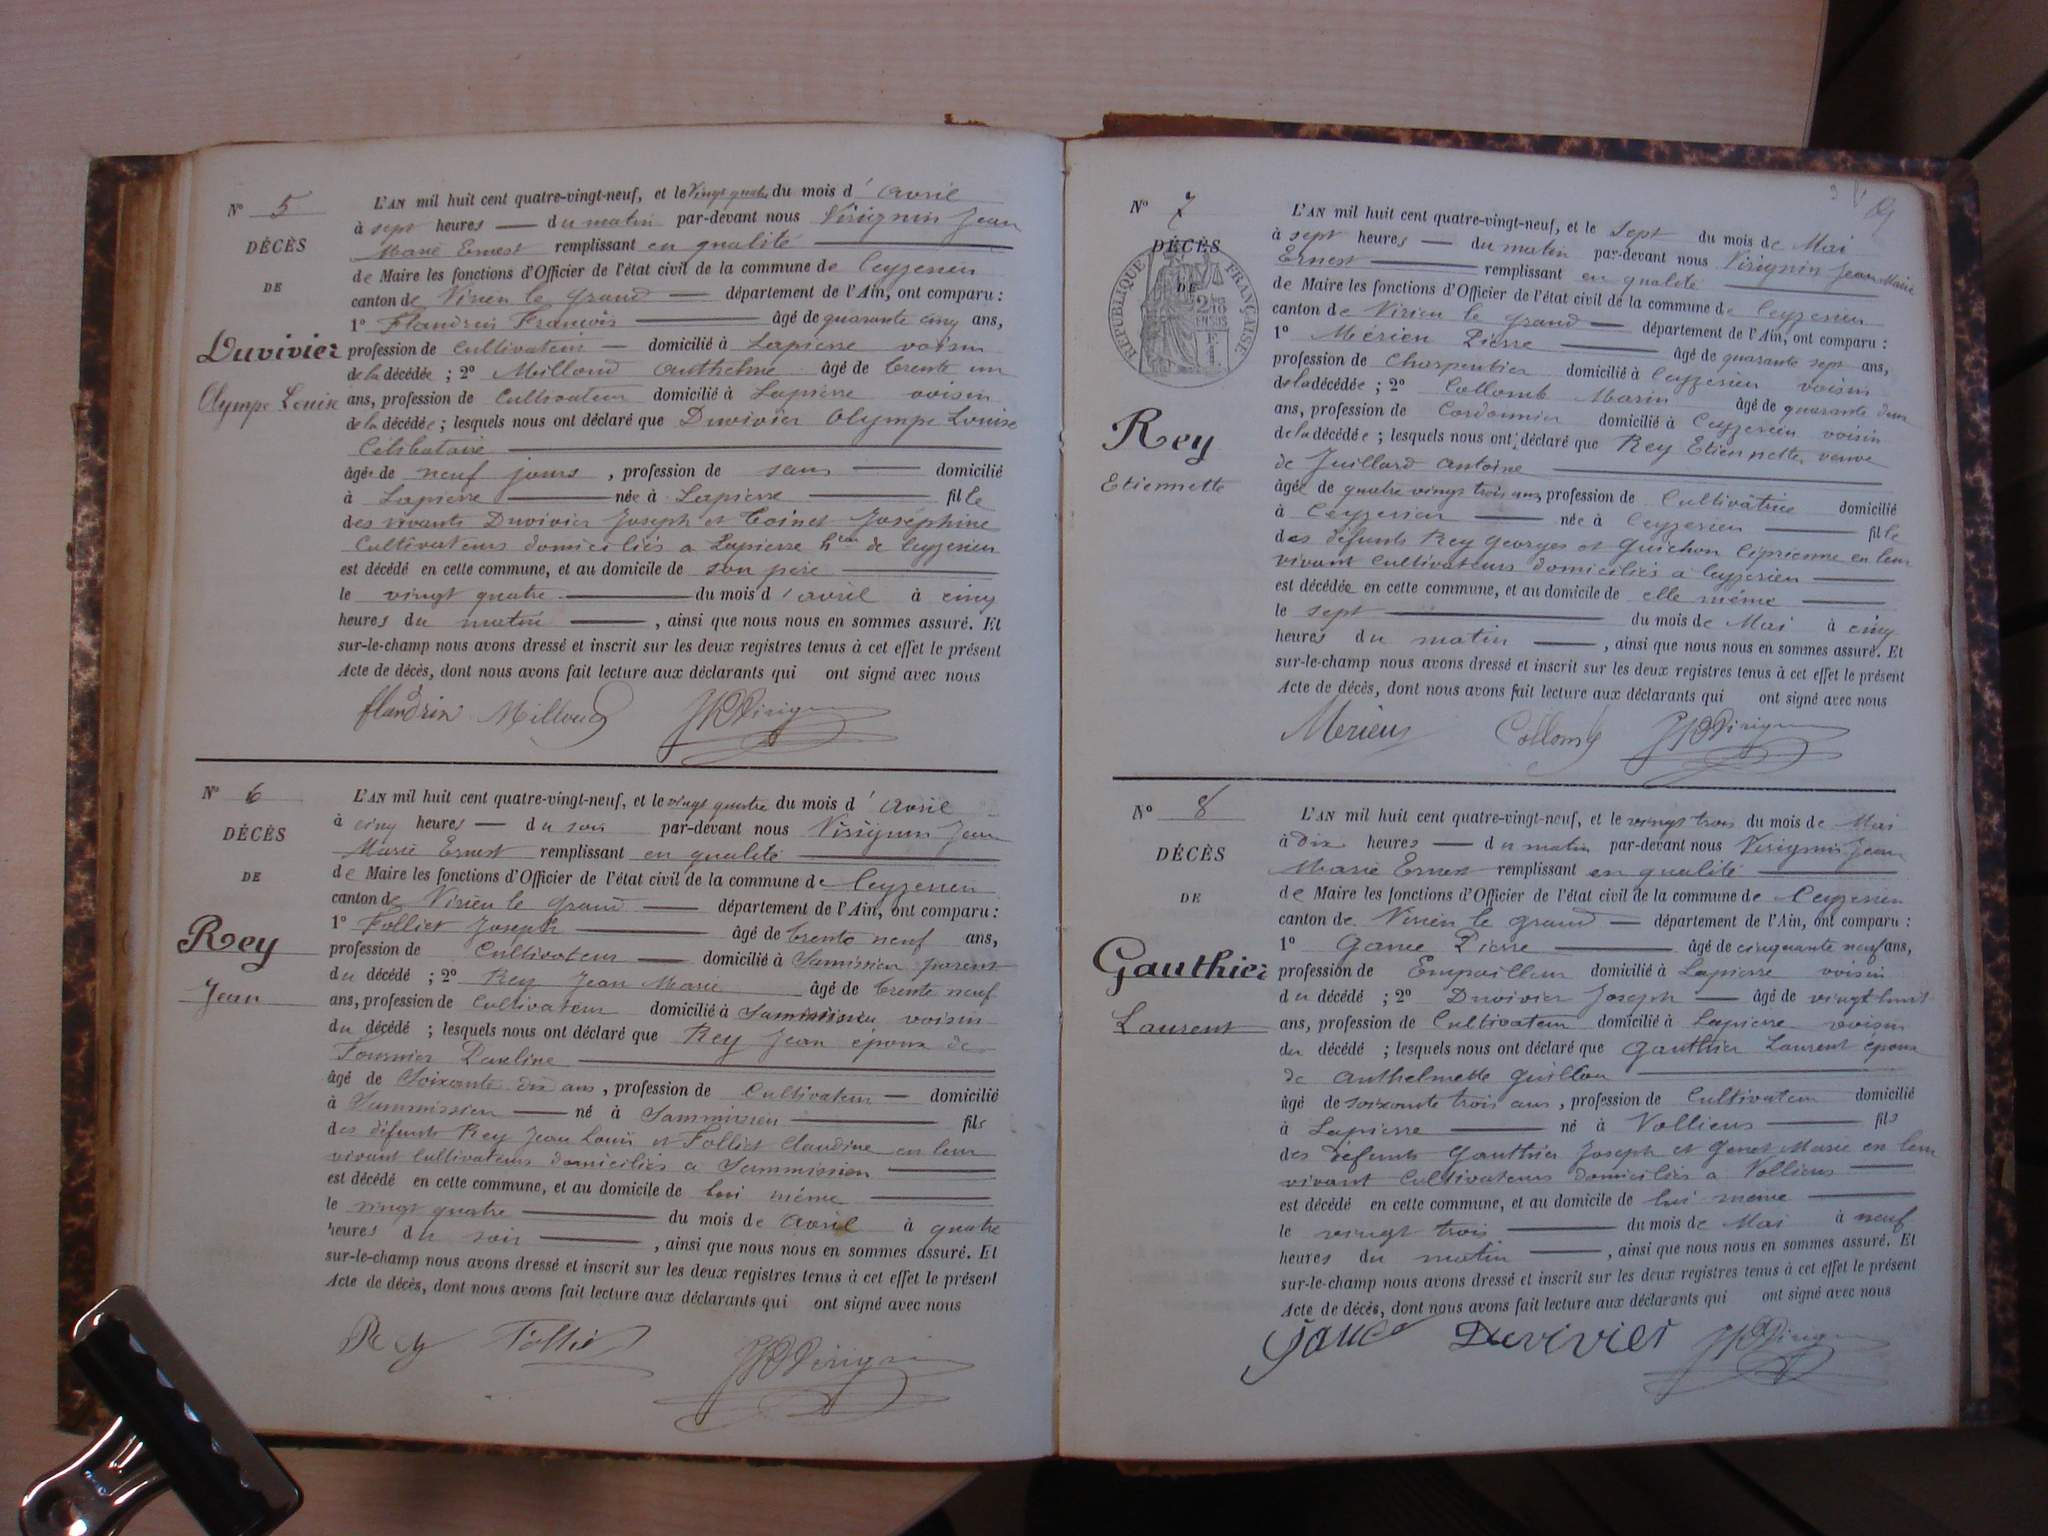 N° 5
DÉCÈS
DE
Duvivier
Olympe Louise
L'AN mil huit cent quatre-vingt-neuf, et le vingt quatre du mois d'avril
à sept heures — du matin par-devant nous Virignin Jean
Marie Ernest remplissant en qualité
de Maire les fonctions d'Officier de l'état civil de la commune de Ceyzerieu
canton de Virieu le grand — département de l'Ain, ont comparu :
1° Flandrin François — âgé de quarante cinq ans,
profession de Cultivateur — domicilié à Lapierre voisin
de la décédée ; 2° Milloud Anthelme âgé de trente un
ans, profession de Cultivateur domicilié à Lapierre voisin
de la décédée ; lesquels nous ont déclaré que Duvivier Olympe Louise
Célibataire
âgée de neuf jours , profession de sans — domicilié
à Lapierre — née à Lapierre — fille
des vivants Duvivier Joseph et Coinet Joséphine
Cultivateurs domiciliés a Lapierre h.eau de Ceyzerieu
est décédé en cette commune, et au domicile de son père
le vingt quatre — du mois d'avril à cinq
heures du matin — , ainsi que nous nous en sommes assuré. Et
sur-le-champ nous avons dressé et inscrit sur les deux registres tenus à cet effet le présent
Acte de décès, dont nous avons fait lecture aux déclarants qui ont signé avec nous
flandrin Milloud JM Virignin
N° 6
DÉCÈS
DE
Rey
Jean
L'AN mil huit cent quatre-vingt-neuf, et le vingt quatre du mois d'avril
à cinq heures — du soir par-devant nous Virignin Jean
Marie Ernest remplissant en qualité
de Maire les fonctions d'Officier de l'état civil de la commune de Ceyzerieu
canton de Virieu le grand — département de l'Ain, ont comparu :
1° Folliet Joseph — âgé de trente neuf ans,
profession de Cultivateur — domicilié à Sammissieu parent
du décédé ; 2° Rey Jean Marie âgé de trente neuf
ans, profession de Cultivateur domicilié à Sammissieu voisin
du décédé ; lesquels nous ont déclaré que Rey Jean époux de
Fournier Pauline
âgé de Soixante dix ans , profession de Cultivateur — domicilié
à Sammissieu — né à Sammissieu — fils
des défunts Rey Jean Louis et Folliet Claudine en leur
vivant Cultivateurs domiciliés a Sammissieu
est décédé en cette commune, et au domicile de lui même
le vingt quatre — du mois de avril à quatre
heures du soir — , ainsi que nous nous en sommes assuré. Et
sur-le-champ nous avons dressé et inscrit sur les deux registres tenus à cet effet le présent
Acte de décès, dont nous avons fait lecture aux déclarants qui ont signé avec nous
Rey Folliet JM Virignin
N° 7
DÉCÈS
DE
RÉPUBLIQUE FRANÇAISE
Rey
Etiennette
L'AN mil huit cent quatre-vingt-neuf, et le sept du mois de Mai
à sept heures — du matin par-devant nous Virignin Jean Marie
Ernest — remplissant en qualité
de Maire les fonctions d'Officier de l'état civil de la commune de Ceyzerieu
canton de Virieu le grand — département de l'Ain, ont comparu :
1° Mérieu Pierre — âgé de quarante sept ans,
profession de Charpentier domicilié à Ceyzerieu voisin
de la décédée ; 2° Collomb Marin âgé de quarante deux
ans, profession de Cordonnier domicilié à Ceyzerieu voisin
de la décédée ; lesquels nous ont déclaré que Rey Etiennette veuve
de Juillard Antoine
âgée de quatre vingt trois ans, profession de Cultivatrice domicilié
à Ceyzerieu — née à Ceyzerieu — fille
des défunts Rey Georges et Guichon Ciprienne en leur
vivant Cultivateurs domiciliés a Ceyzerieu
est décédée en cette commune, et au domicile de elle même
le sept — du mois de Mai à cinq
heures du matin — , ainsi que nous nous en sommes assuré. Et
sur-le-champ nous avons dressé et inscrit sur les deux registres tenus à cet effet le présent
Acte de décès, dont nous avons fait lecture aux déclarants qui ont signé avec nous
Merieu Collomb JM Virignin
N° 8
DÉCÈS
DE
Gauthier
Laurent
L'AN mil huit cent quatre-vingt-neuf, et le vingt trois du mois de Mai
à dix heures — du matin par-devant nous Virignin Jean
Marie Ernest remplissant en qualité
de Maire les fonctions d'Officier de l'état civil de la commune de Ceyzerieu
canton de Virieu le grand — département de l'Ain, ont comparu :
1° Pierre — âgé de cinquante neuf ans,
profession de Empailleur domicilié à Lapierre voisin
du décédé ; 2° Duvivier Joseph — âgé de vingt huit
ans, profession de Cultivateur domicilié à Lapierre voisin
du décédé ; lesquels nous ont déclaré que Gauthier Laurent époux
de Anthelmette Guillon
âgé de soixante trois ans, profession de Cultivateur domicilié
à Lapierre — né à Vollien — fils
des défunts Gauthier Joseph et Genet Marie en leur
vivant Cultivateurs domiciliés a Vollien
est décédé en cette commune, et au domicile de lui meme
le vingt trois — du mois de Mai à neuf
heures du matin — , ainsi que nous nous en sommes assuré. Et
sur-le-champ nous avons dressé et inscrit sur les deux registres tenus à cet effet le présent
Acte de décès, dont nous avons fait lecture aux déclarants qui ont signé avec nous
Duvivier JM Virignin